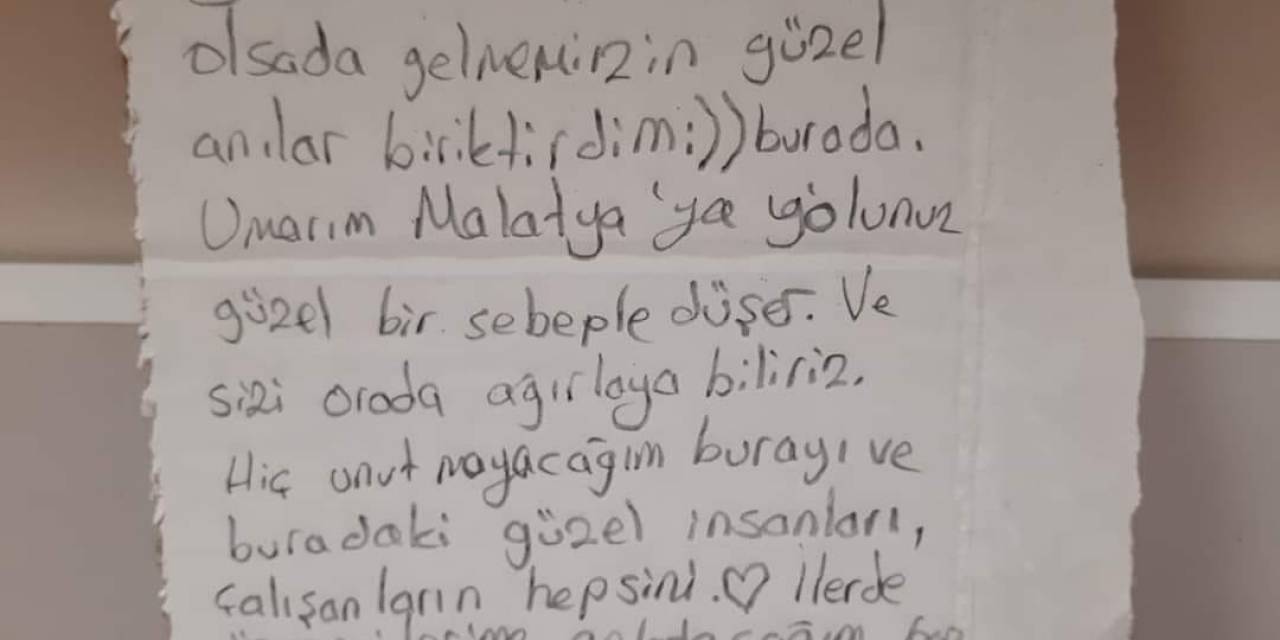 olsada gelmemizin güzel
anılar biriktirdim:))burada.
Umarım Malatya'ya yolunuz
güzel bir sebeple düşer. Ve
sizi orada ağırlaya biliriz.
Hiç unutmayacağım burayı ve
buradaki güzel insanları,
çalışanların hepsini.♡ İlerde